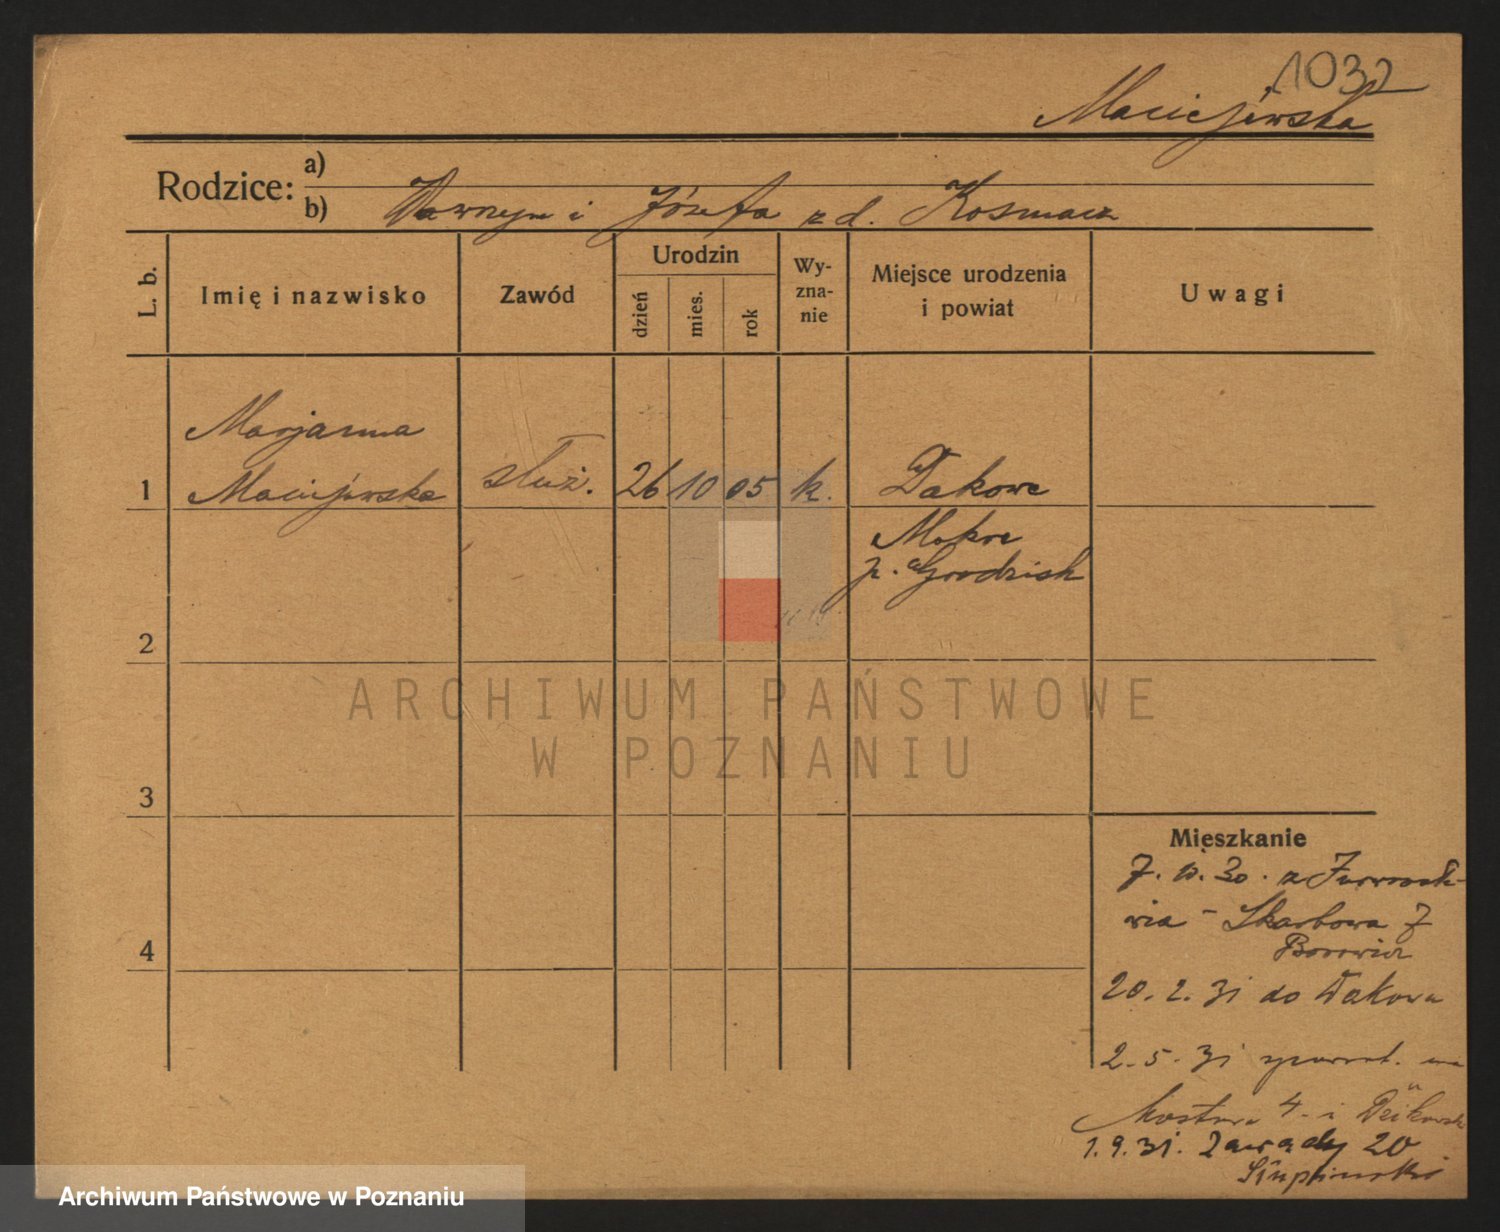 1032
Maciejewska
Rodzice:
a)
b) Wawrzyn i Józefa z d. Kosmacz
L. b.
Imię i nazwisko
Zawód
Urodzin
dzień
mies.
rok
Wy-
zna-
nie
Miejsce urodzenia
i powiat
Uwagi
Marjanna
1 Maciejewska służ. 26 10 05 k. Dakowe
Mokre
p. Grodzisk
2
3
4
ARCHIWUM PAŃSTWOWE
W POZNANIU
Mieszkanie
7. 10. 30. z
- Skarbowa 7
20. 2. 31 do Dakowa
2. 5. 31
Mostowa 4. i
1. 9. 31. Zawady 20
Archiwum Państwowe w Poznaniu